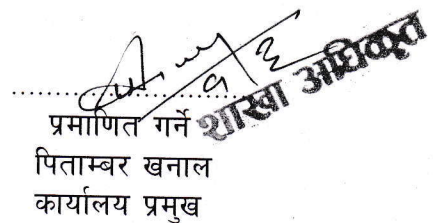 प्रमाणित गर्ने
शाखा अधिकृत
पिताम्बर खनाल
कार्यालय प्रमुख